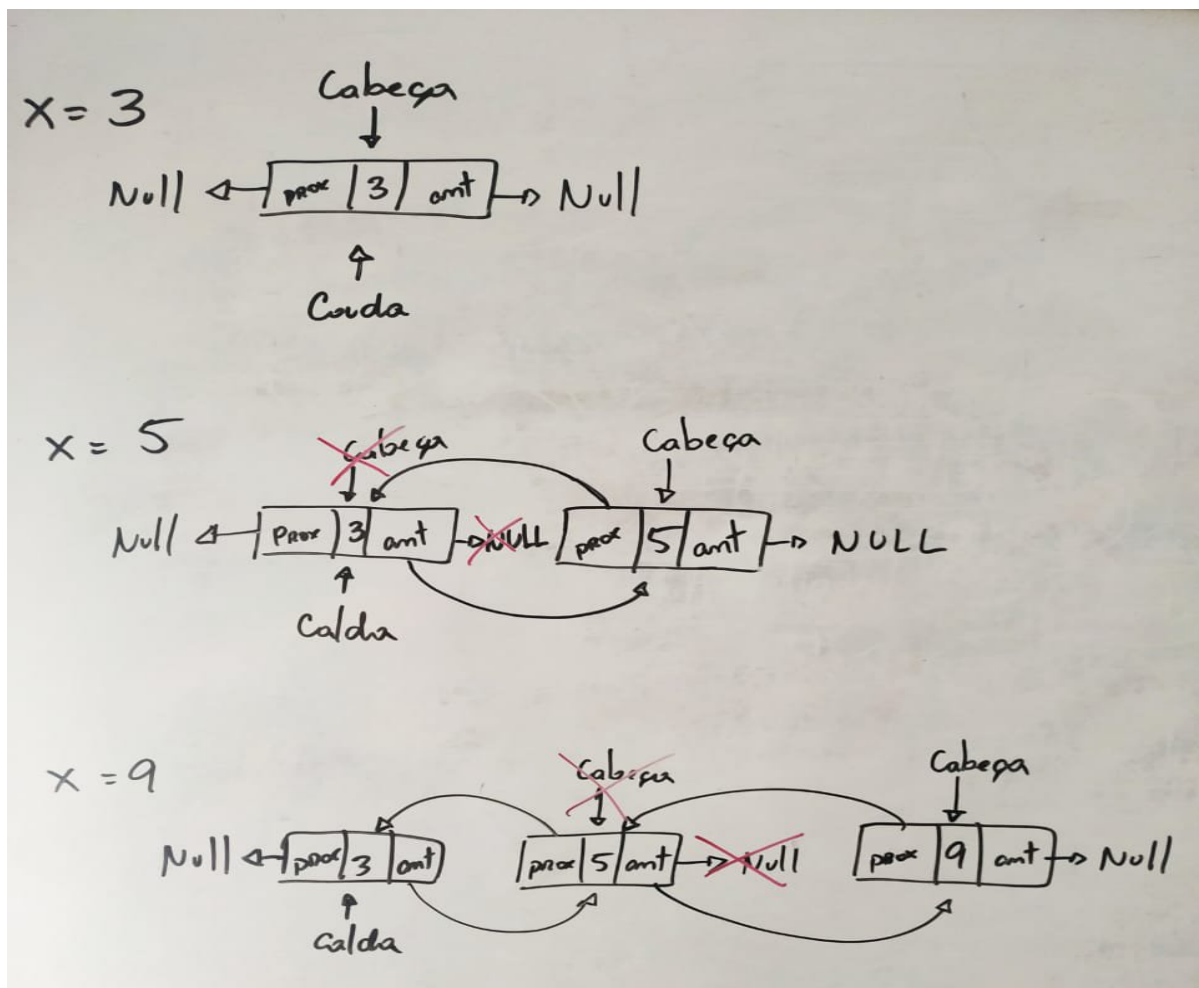 x = 3
Cabeça
Null prox 3 ant Null
Cauda
x = 5
Cabeça Cabeça
Null Prox 3 ant NULL prox 5 ant NULL
Calda
x = 9
Cabeça Cabeça
Null prox 3 ant prox 5 ant Null prox 9 ant Null
Calda